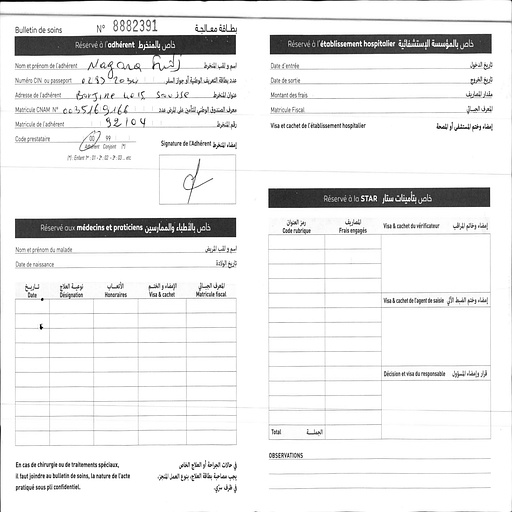 Bulletin de soins N° 8882391 بطاقة معالجة
Réservé à l'adhérent خاص بالمنخرط
Nom et prénom de l'adhérent اسم و لقب المنخرط
Numéro CIN ou passeport عدد بطاقة التعريف الوطنية أو جواز السفر
Adresse de l'adhérent عنوان المنخرط
Matricule CNAM N° 0035169166 معرف الصندوق الوطني للتأمين على المرض عدد
Matricule de l'adhérent 92104 رقم المنخرط
Code prestataire 00 99
Adhérent Conjoint (*)
(*) : Enfant 1er : 01 - 2e : 02 - 3e : 03 ... etc
Signature de l'Adhérent إمضاء المنخرط
Réservé aux médecins et praticiens خاص بالأطباء والممارسين
Nom et prénom du malade اسم و لقب المريض
Date de naissance تاريخ الولادة
تاريخ نوعية العلاج الأتعاب الإمضاء و الختم المعرف الجبائي
Date Désignation Honoraires Visa & cachet Matricule fiscal
En cas de chirurgie ou de traitements spéciaux,
il faut joindre au bulletin de soin, la nature de l'acte
pratiqué sous pli confidentiel.
في حالات الجراحة أو العلاج الخاص
يجب مصاحبة بطاقة العلاج، بنوع العمل المنجز،
في ظرف سرّي.
Réservé à l'établissement hospitalier خاص بالمؤسسة الإستشفائية
Date d'entrée تاريخ الدخول
Date de sortie تاريخ الخروج
Montant des frais مقدار المصاريف
Matricule Fiscal المعرف الجبائي
Visa et cachet de l'établissement hospitalier إمضاء وختم المستشفى أو المصحة
Réservé à la STAR خاص بتأمينات ستار
رمز العنوان المصاريف
Code rubrique Frais engagés
Visa & cachet du vérificateur إمضاء وخاتم المراقب
Visa & cachet de l'agent de saisie إمضاء وختم الضبط الآلي
Décision et visa du responsable قرار وإمضاء المسؤول
Total الجملة
OBSERVATIONS